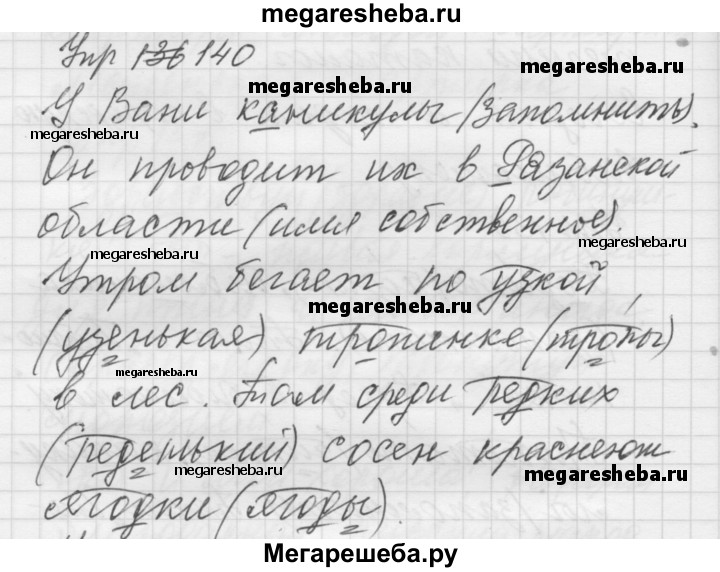 megaresheba.ru
Упр 136 140
megaresheba.ru
megaresheba.ru
У Вани каникулы (запомнить).
megaresheba.ru
Он проводит их в Рязанской
области (имя собственное).
megaresheba.ru
megaresheba.ru
Утром бегает по узкой
megaresheba.ru
(узенькая) тропинке (тропы)
megaresheba.ru
в лес. Там среди редких
(реденький) сосен краснеют
megaresheba.ru
megaresheba.ru
ягодки (ягоды).
Мегарешеба.ру